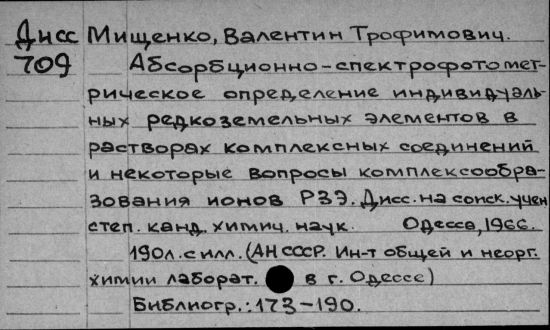 Дисс Мищенко, Валентин Трофимович.
709 Абсорбционно-спектрофотомет-
рическое определение индивидуаль-
ных редкоземельных элементов в
растворах комплексных соединений
и некоторые вопросы комплексообра-
зования ионов РЗЭ. Дисс. на соиск. учен
степ. канд. химич. наук. Одесса, 1966.
190л. с илл. (АН СССР. Ин-т общей и неорг.
химии лаборат. в г. Одессе)
Библиогр.: 173-190.